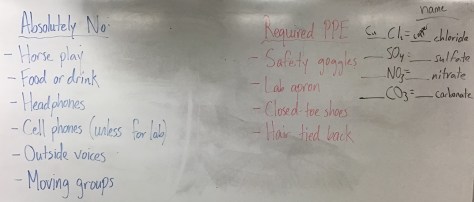 Absolutely No:
- Horse play
- Food or drink
- Headphones
- Cell phones (unless for lab)
- Outside voices
- Moving groups
Required PPE
- Safety goggles
- Lab apron
- Closed-toe shoes
- Hair tied back
name
Cl₂ = chloride
SO₄ = sulfate
NO₃ = nitrate
CO₃ = carbonate